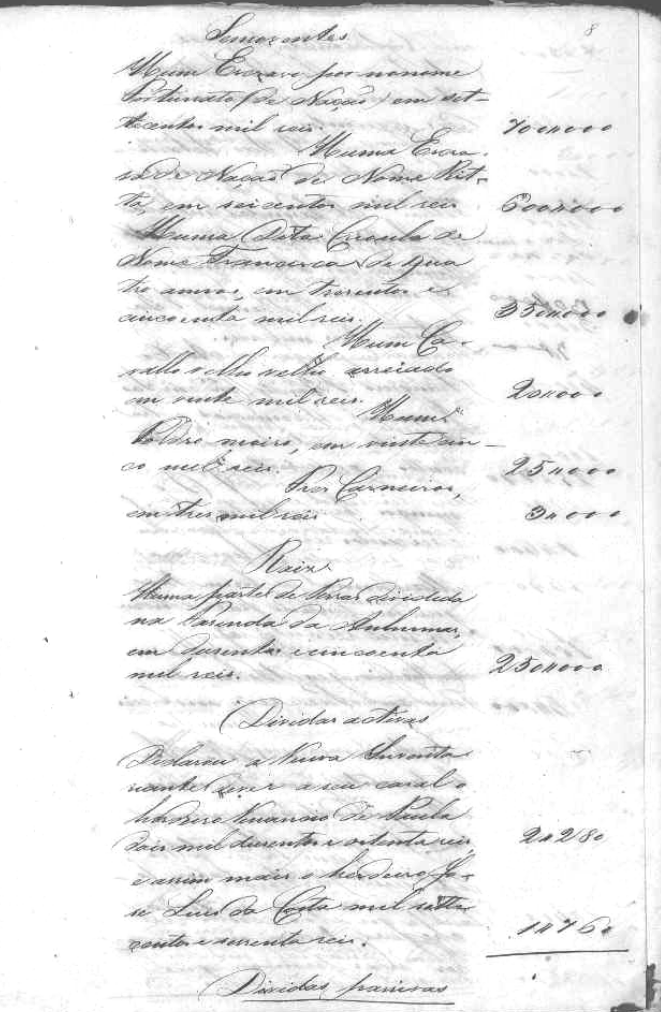 Semoventes 8
Hum Escravo por nonome
Fortunato (de Nação) em set-
tecentos mil reis. 700#000
Huma Escra-
va de Nação de Nome Rit-
ta, em seicentos mil reis 600#000
Huma Dita Creoula de
Nome Francisca de qua
tro annos, em tresentos e
cincoenta mil reis. 350#000
Hum Ca-
vallo velho arreiado
em vinte mil reis. 20#000
Hum
Poldro moiro, em vinte cin-
co mil reis. 25#000
Tres Carneiros,
em tres mil reis 3#000
Raiz
Huma parte de terras devideda
na Fasenda da Anhumas,
em dusentos e cincoenta
mil reis. 250#000
Dividas activas
Declarou a Viuva Inventa
riante dever a seu casal o
herdeiro Venancio de Paula
dois mil dusentos e oitenta reis 2#280
e assim mais o herdeiro Jo-
se Luis da Costa mil sette
centos e sessenta reis. 1#760
Dividas passivas